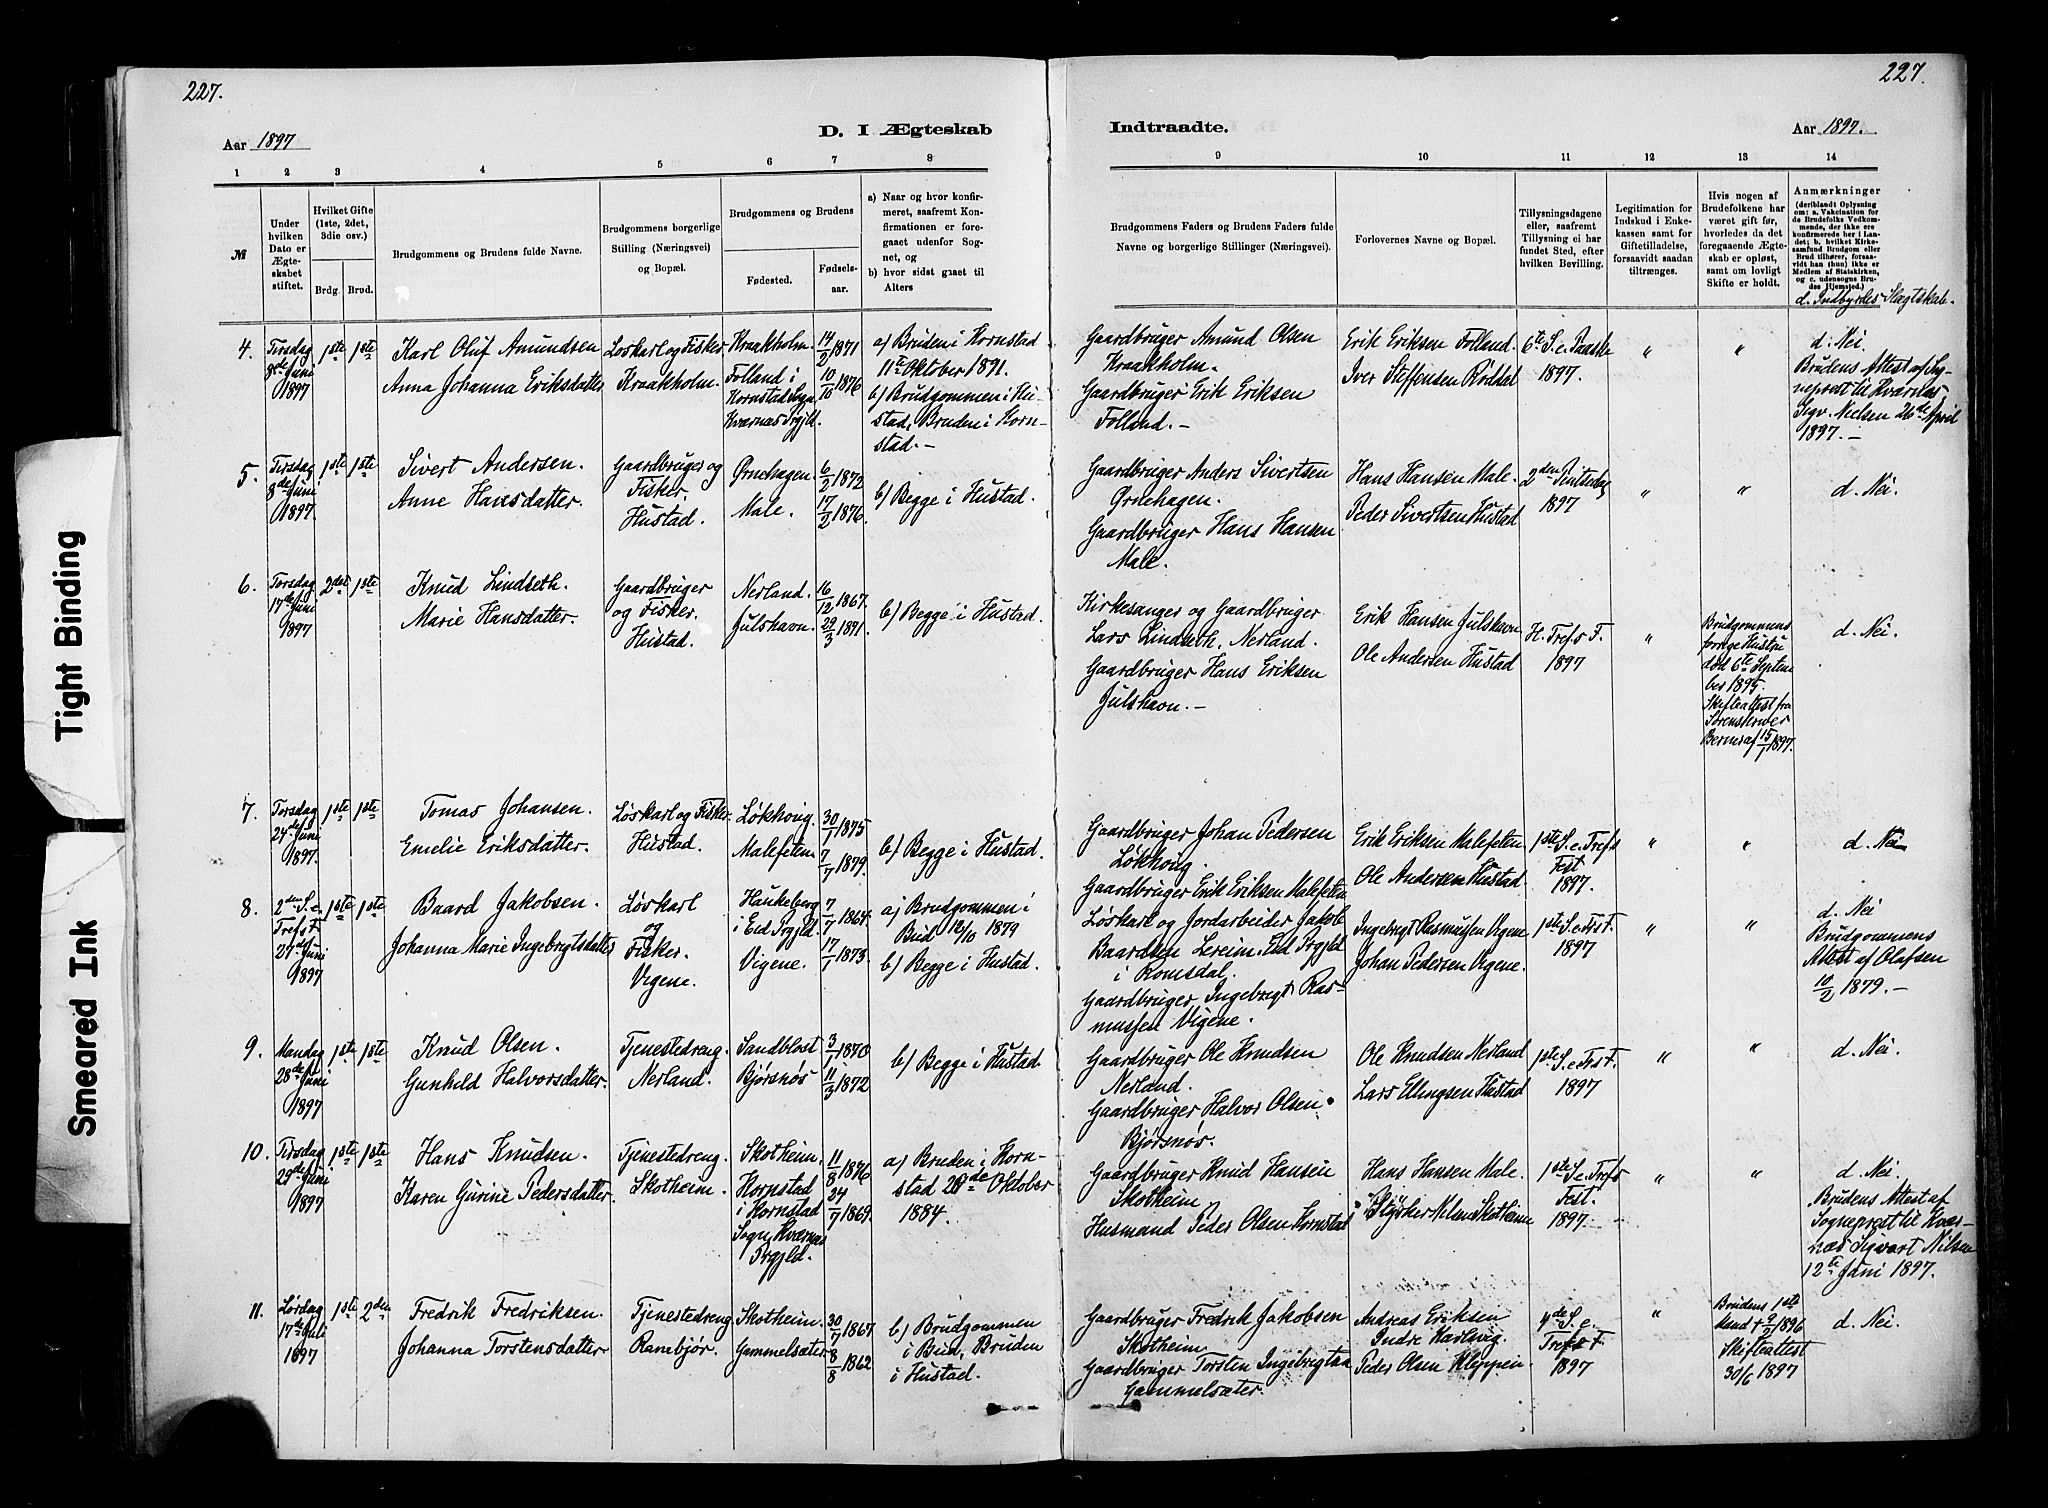 227.
227.
Aar 1897
D. I Ægteskab
Indtraadte.
Aar 1897.
1 2 3 4 5 6 7 8
9 10 11 12 13 14
№
Under hvilken Dato er Ægteskabet stiftet.
Hvilket Gifte (1ste, 2det, 3die osv.)
Brdg. Brud.
Brudgommens og Brudens fulde Navne.
Brudgommens borgerlige Stilling (Næringsvei) og Bopæl.
Brudgommens og Brudens
Fødested.
Fødselsaar.
a) Naar og hvor konfirmeret, saafremt Konfirmationen er foregaaet udenfor Sognet, og
b) hvor sidst gaaet til Alters
Brudgommens Faders og Brudens Faders fulde Navne og borgerlige Stillinger (Næringsvei).
Forlovernes Navne og Bopæl.
Tillysningsdagene eller, saafremt Tillysning ei har fundet Sted, efter hvilken Bevilling.
Legitimation for Indskud i Enkekassen samt for Giftetilladelse, forsaavidt saadan tiltrænges.
Hvis nogen af Brudefolkene har været gift før, hvorledes da det foregaaende Ægteskab er opløst, samt om lovligt Skifte er holdt.
Anmærkninger (deriblandt Oplysning om: a. Vakcination for de Brudefolks Vedkommende, der ikke er konfirmerede her i Landet; b. hvilket Kirkesamfund Brudgom eller Brud tilhører, forsaavidt han (hun) ikke er Medlem af Statskirken, og c. udensogns Brudes Hjemsted.)
d. Indbyrdes Slægtskab.
4. Tirsdag 8de Juni 1897 1ste 1ste
Karl Oluf Amundsen
Anna Johanna Eriksdatter
Løskarl og Fisker
Kraakholm.
Kraakholm. 14/2 1871
Folland i Kornstad Sogn Kværnæs Prgjld. 10/10 1876
a) Bruden i Kornstad 11te Oktober 1891.
b) Brudgommen i Hustad, Bruden i Kornstad.-
Gaardbruger Amund Olsen Kraakholm.
Gaardbruger Erik Eriksen Folland.-
Erik Eriksen Folland.
Iver Steffensen Rødal
6te S. e. Paaske 1897.
" "
d. Nei.
Brudens Attest af Sogneprest til Kværnæs Sigv. Nielsen 26de April 1897.-
5. Tirsdag 8de Juni 1897. 1ste 1ste
Sivert Andersen.
Anne Hansdatter.
Gaardbruger og Fisker. Hustad.
Ørnehagen. 6/2 1872
Male. 17/2 1876.
b) Begge i Hustad.
Gaardbruger Anders Sivertsen Ørnehagen.
Gaardbruger Hans Hansen Male.
Hans Hansen Male.
Peder Sivertsen Hustad
2den Pintsedag 1897
" "
d. Nei.
6. Torsdag 17de Juni 1897 2det 1ste
Knud Lindseth.
Marie Hansdatter.
Gaardbruger og Fisker. Hustad.
Nerland. 16/12 1867.
Julshavn. 29/3 1891.
b) Begge i Hustad.
Kirkesanger og Gaardbruger Lars Lindseth, Nerland.
Gaardbruger Hans Eriksen Julshavn.-
Erik Hansen Julshavn
Ole Andersen Hustad
H. Tref.s F. 1897
"
Brudgommens forrige Hustru død 6te September 1895. Skifteattest fra Sorenskriver Berner af 15/1 1897.
d. Nei.
7. Torsdag 24de Juni 1897. 1ste 1ste
Tomas Johansen.
Emelie Eriksdatter.
Løskarl og Fisker. Hustad.
Løkhoug. 30/7 1875
Malefeten. 7/7 1879.
b) Begge i Hustad.
Gaardbruger Johan Pedersen Løkhoug.
Gaardbruger Erik Eriksen Malefeten
Erik Eriksen Malefeten
Ole Andersen Hustad.
1ste S. e. Tref.s Fest 1897.
" "
d. Nei
8. 2den S. e. Trefst. 27de Juni 1897 1ste 1ste
Baard Jakobsen.
Johanna Marie Ingebrigtsdatter
Løskarl og Fisker. Vigene.
Haukeberg i Eid Prgjld. 7/7 1864.
Vigene. 17/7 1873.
a) Brudgommen i Bud 12/10 1879
b) Begge i Hustad.
Løskarl og Jordarbeider Jakob Baardsen Lereim, Eid Prgjld i Romsdal.
Gaardbruger Ingebrigt Rasmussen Vigene.
Ingebrigt Rasmussen Vigene
Johan Pedersen Vigene.
1ste S. e. Trs F. 1897
" "
d. Nei
Brudgommens Attest af Olafsen 10/2 1879.-
9. Mandag 28de Juni 1897 1ste 1ste
Knud Olsen.
Gunhild Halvorsdatter.
Tjenestedreng. Nerland.
Sandblost 3/7 1870
Bjørsnøs 11/3 1872
b) Begge i Hustad.
Gaardbruger Ole Knudsen Nerland.
Gaardbruger Halvor Olsen Bjørsnøs.
Ole Knudsen Nerland
Lars Ellingsen Hustad
1ste S. e. Trs F. 1897
" "
d. Nei.
10. Tirsdag 29de Juni 1897 1ste 1ste
Hans Knudsen.
Karen Gurine Pedersdatter.
Tjenestedreng. Skotheim.
Skotheim. 11/8 1876
Kornstad i Kornstad Sogn, Kværnæs Prgjld. 24/7 1869.
a) Bruden i Kornstad 28de Oktober 1884.
Gaardbruger Knud Hansen Skotheim
Husmand Peder Olsen Kornstad
Hans Hansen Male.
Styrker Nilsen Skotheim
1ste S. e. Tref.s Fest. 1897
" "
d. Nei.
Brudens Attest af Sogneprest til Kværnæs Sigvart Nilsen 12te Juni 1897.
11. Lørdag 17de Juli 1897 1ste 2den
Fredrik Fredriksen.
Johanna Torstensdatter
Tjenestedreng Ranebjør.
Skotheim. 30/7 1867
Gammelsæter. 8/8 1862
b) Brudgommen i Bud, Bruden i Hustad.
Gaardbruger Fredrik Jakobsen Skotheim
Gaardbruger Torsten Ingebrigtsen Gammelsæter.
Andreas Eriksen Indre Harlsvig.
Peder Olsen Kleppen.
4de S. e. Tref.s F. 1897
"
Brudens 1ste Mand + 9/2 1896 Skifteattest 30/6 1897
d. Nei.
Tight Binding
Smeared Ink